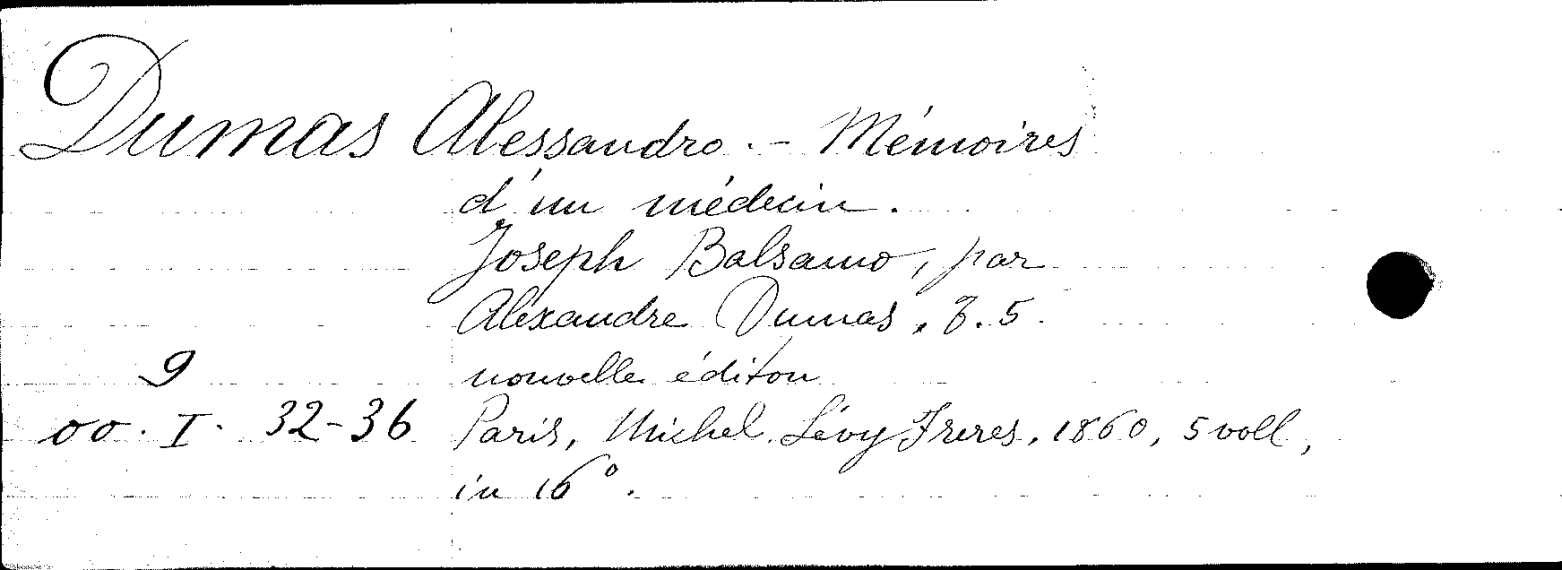 Dumas Alessandro. - Mémoires
d'un médecin.
Joseph Balsamo, par
Alexandre Dumas, T. 5.
9 nouvelle éditon
oo. I. 32-36 Paris, Michel Lévy Freres, 1860, 5 voll,
in 16°.